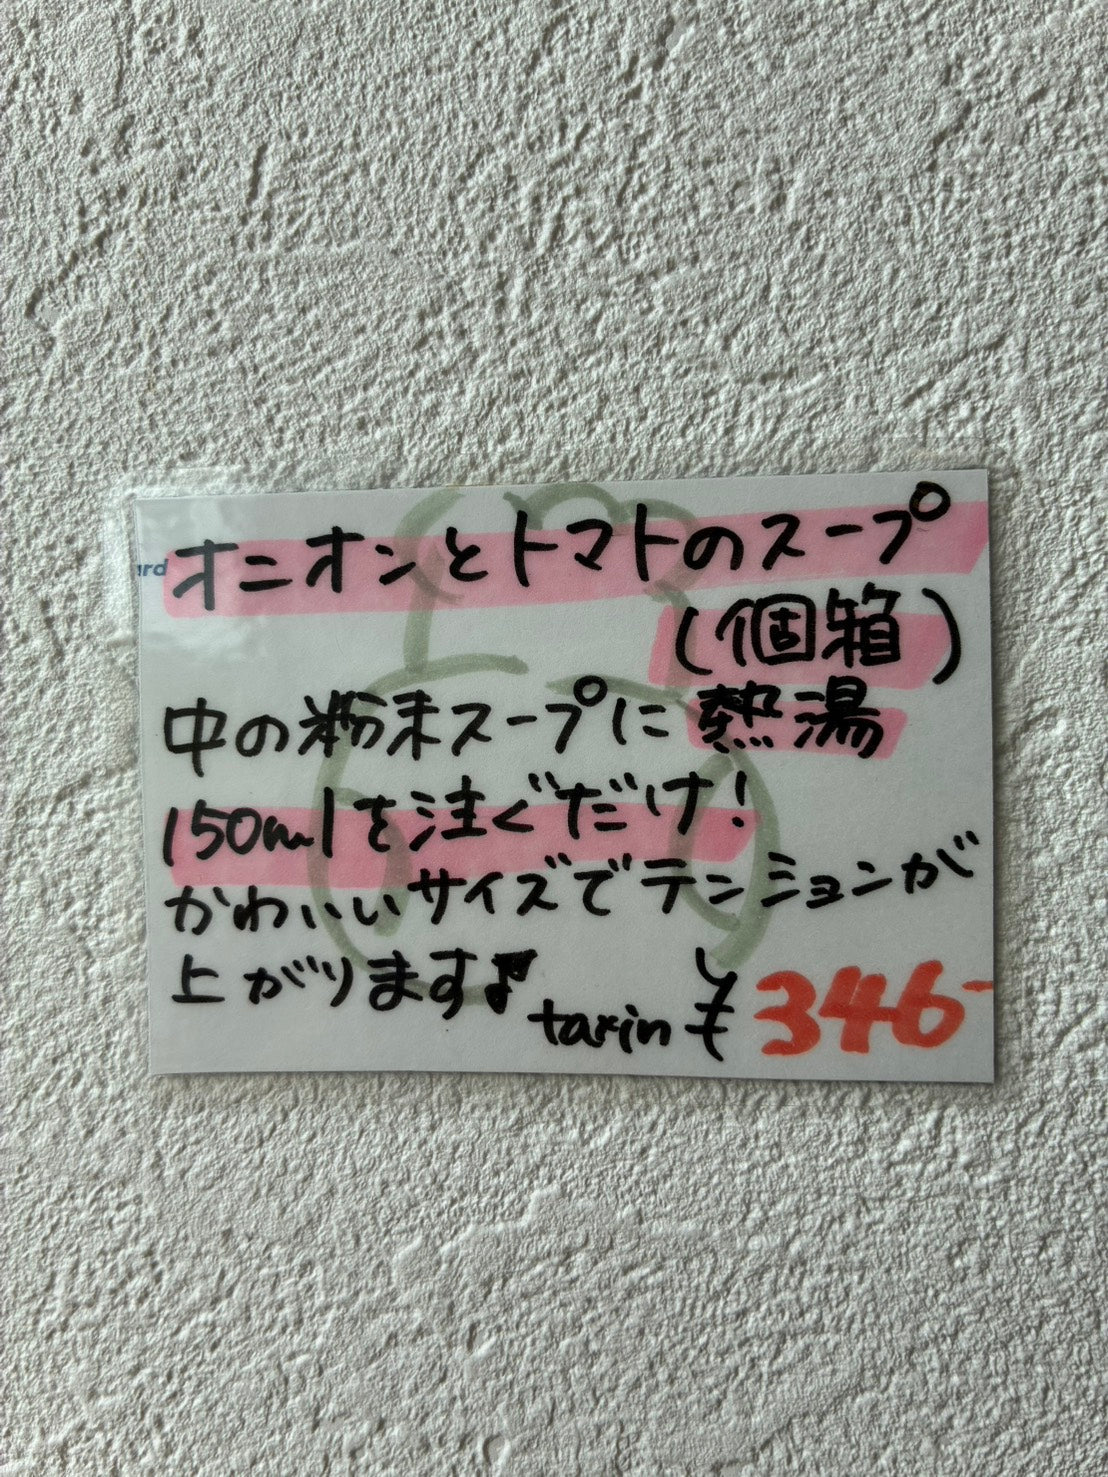 オニオンとトマトのスープ
(個箱)
中の粉末スープに熱湯
150mlを注ぐだけ!
かわいいサイズでテンションが
上がります♪
taxin ¥346-